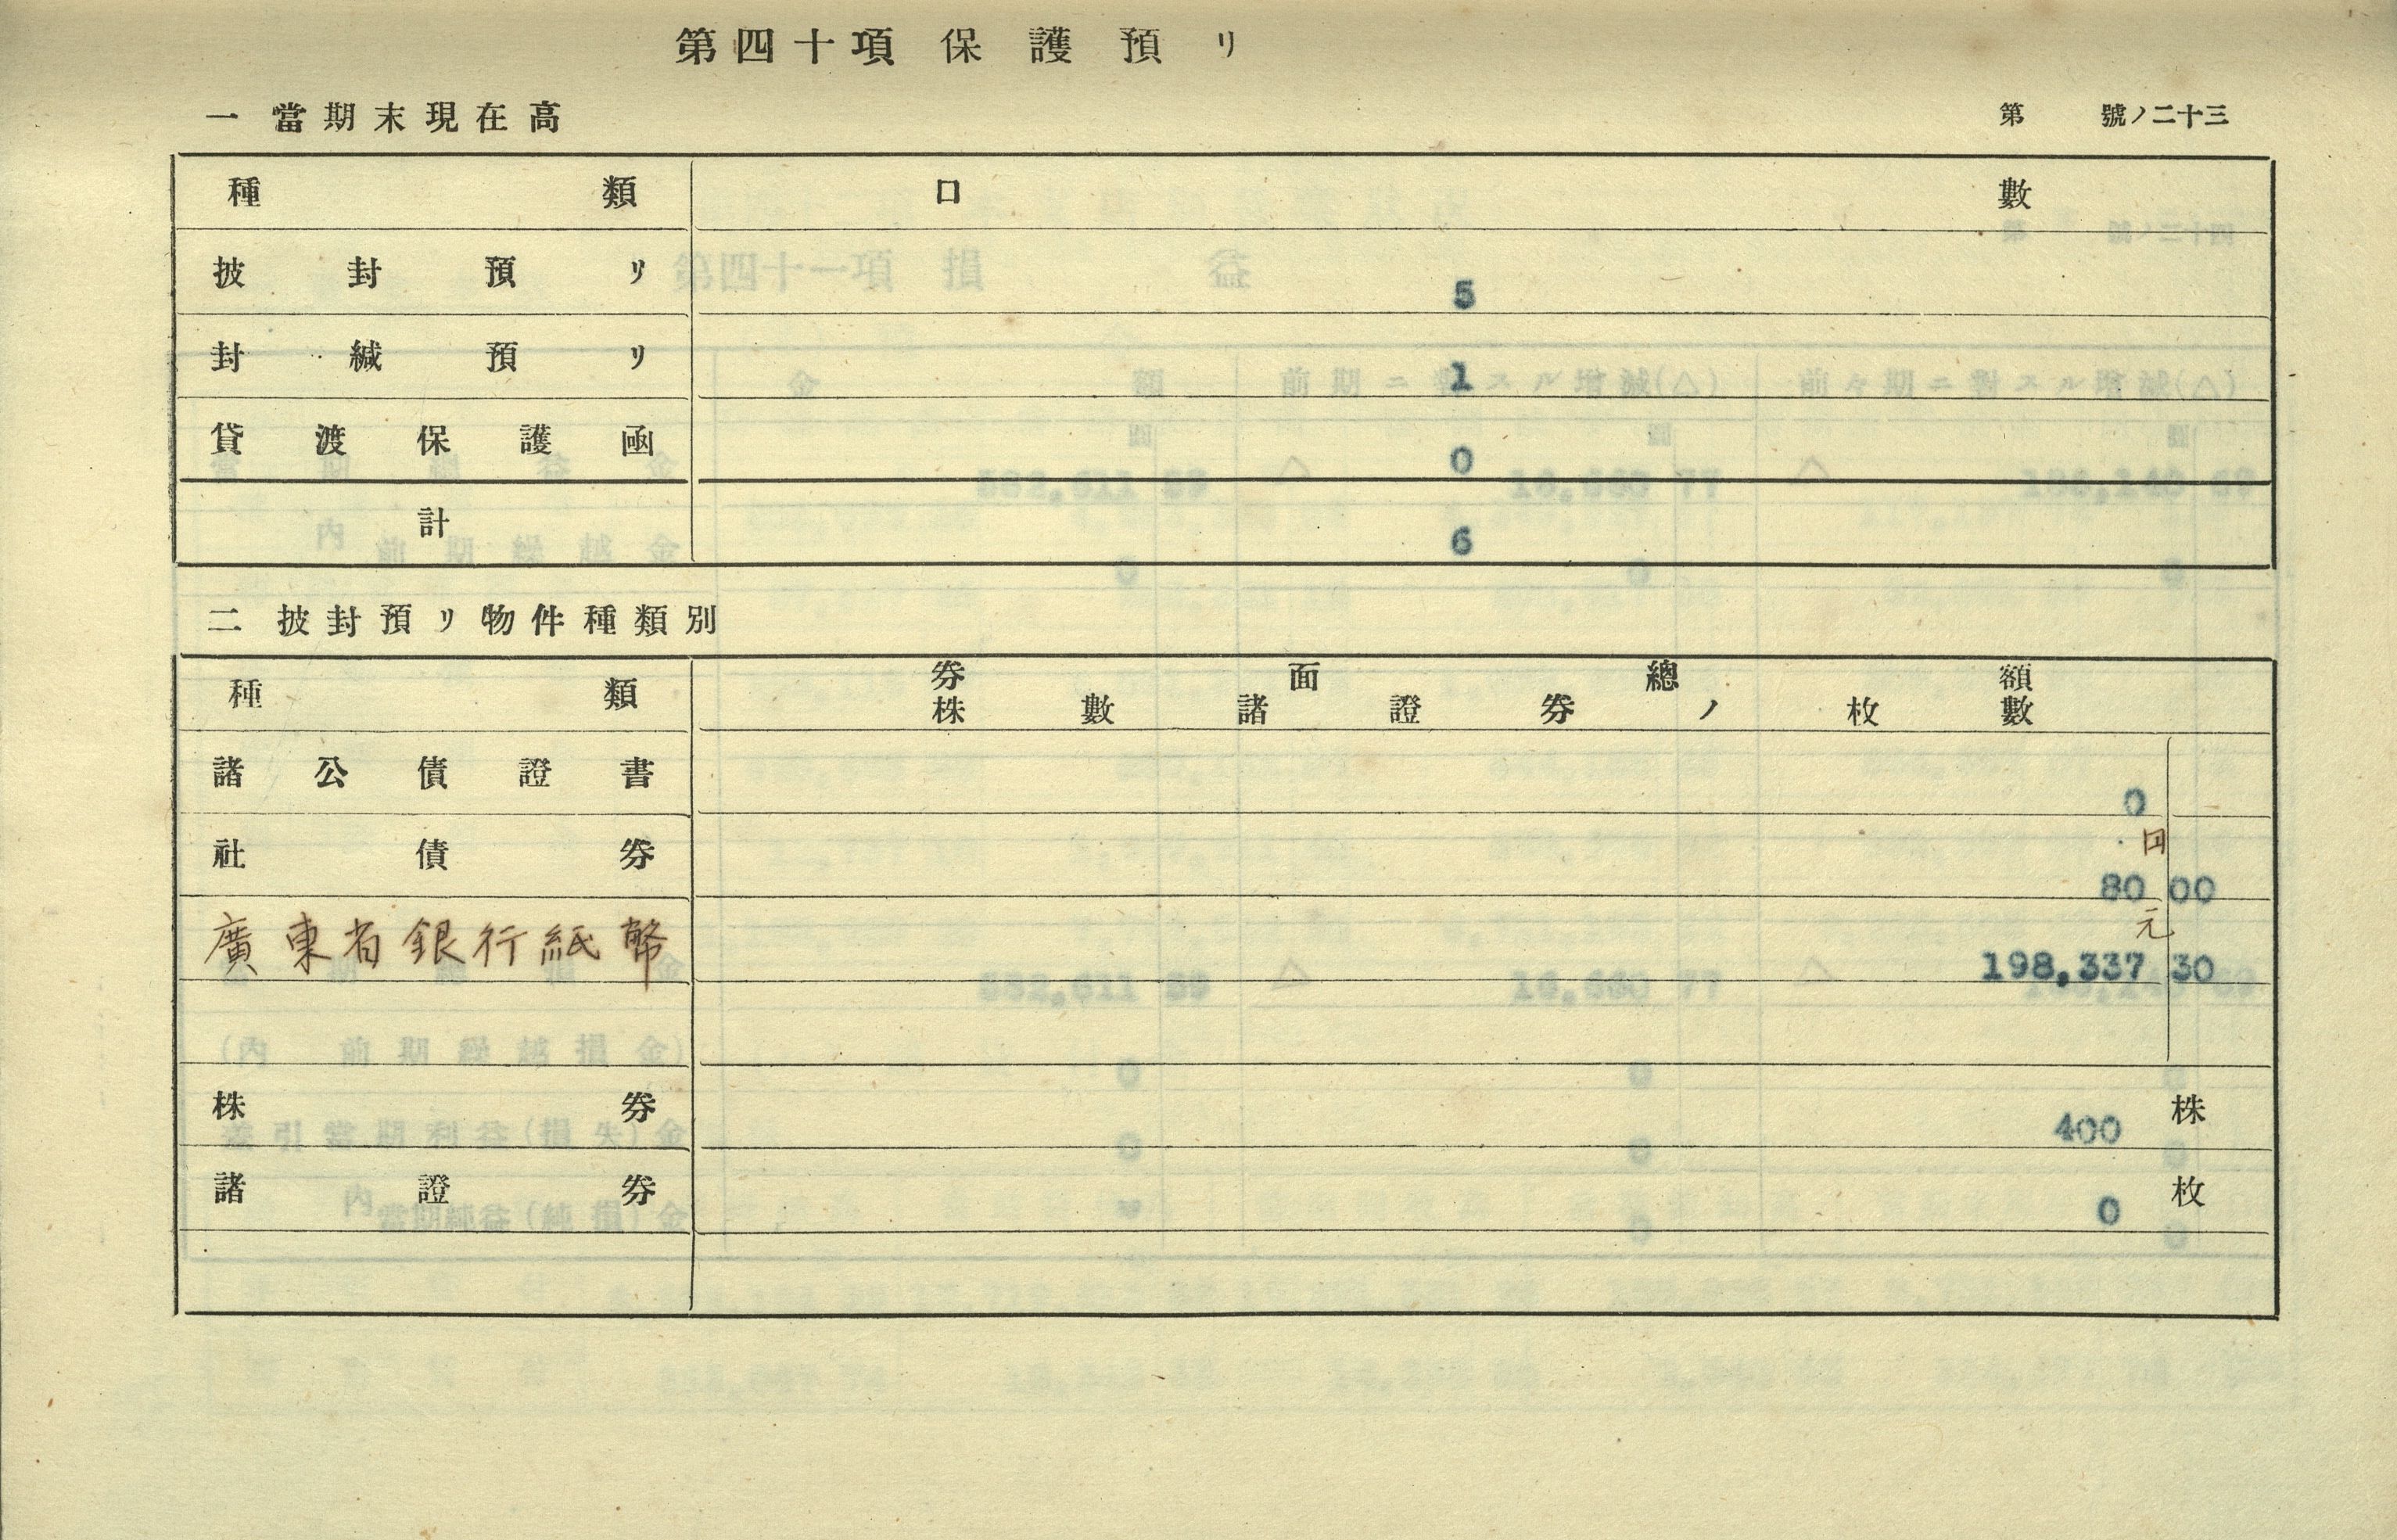 第四十項 保護預リ
一 當期末現在高
第 號ノ二十三
種類 口數
披封預リ 5
封緘預リ 1
貸渡保護函 0
計 6
二 披封預リ物件種類別
種類 券面總額
株數諸證券ノ枚數
諸公債證書 0
社債券 円 80 00
廣東省銀行紙幣 元 198,337 30
株券 400 株
諸證券 0 枚